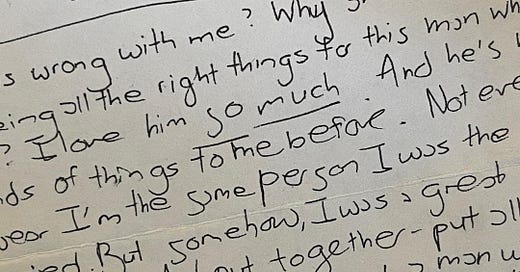 s wrong with me? Why
eing all the right things for this man wh
? I love him so much. And he's
nds of things to me before. Not eve
wear I'm the same person I was the
ied. But somehow, I was a great
out together - put all
man w